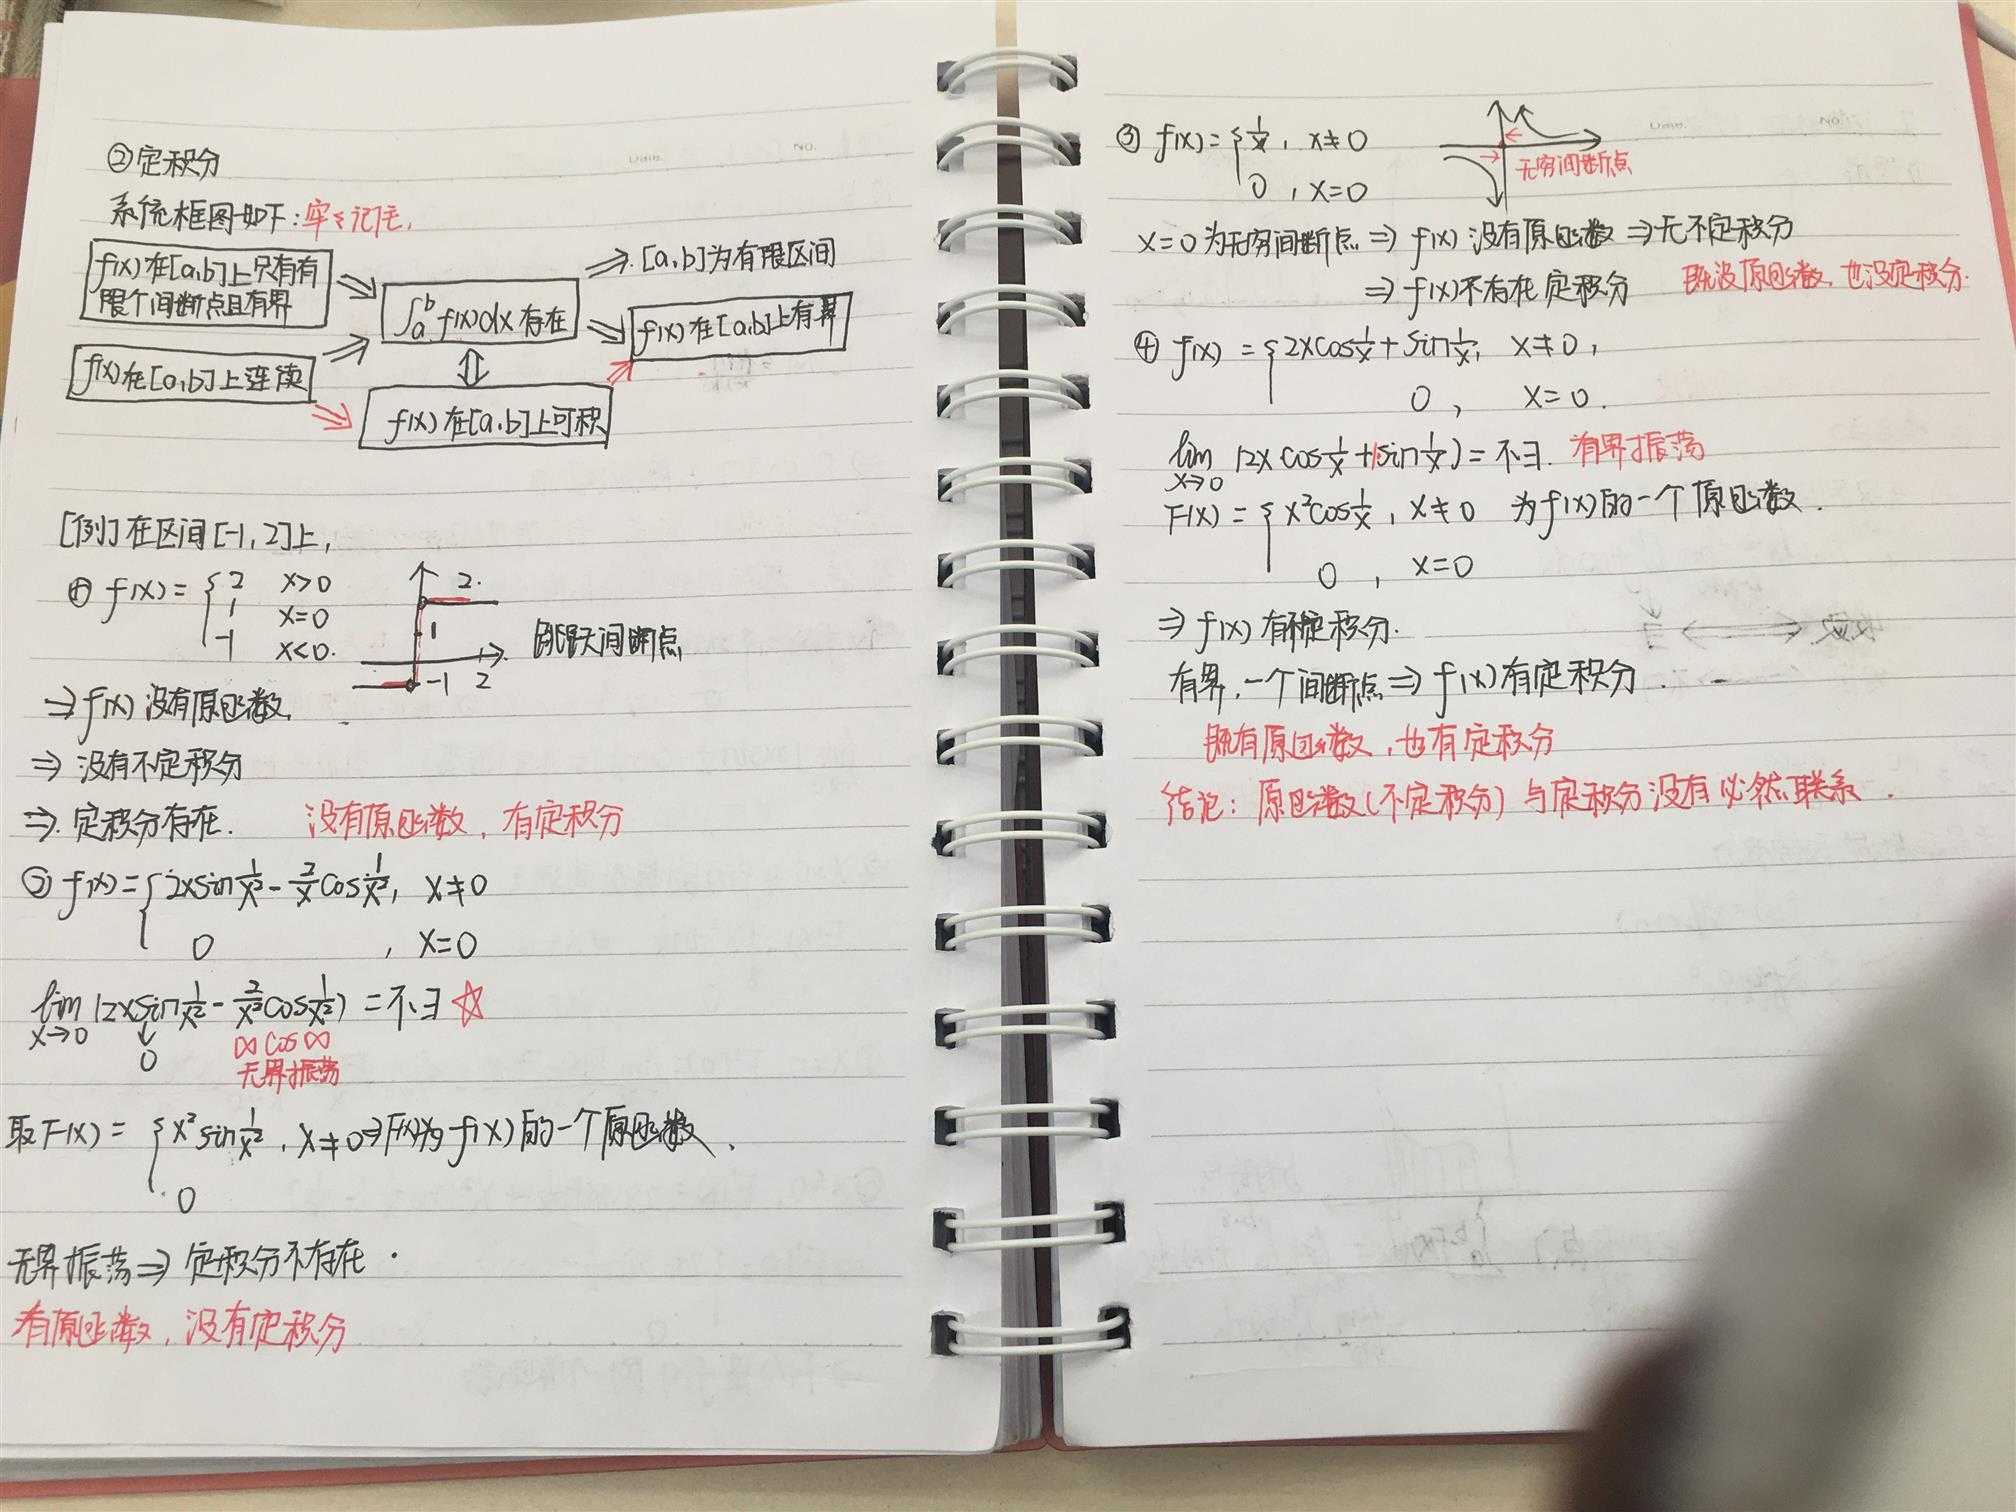 ②定积分
系统框图如下:牢々记住,
f(x)在[a,b]上只有有
限个间断点且有界
f(x)在[a,b]上连续
∫ₐᵇ f(x)dx存在
f(x)在[a,b]上可积
⇒[a,b]为有限区间
f(x)在[a,b]上有界
[例]在区间[-1,2]上,
① f(x)={ 2 x>0
1 x=0
-1 x<0.
2.
1
-1 2
跳跃间断点
⇒f(x)没有原函数,
⇒没有不定积分
⇒.定积分存在. 没有原函数,有定积分
② f(x)={ 2xsin 1/x² - 2/x cos 1/x², x≠0
0 , x=0
lim x→0 (2xsin 1/x² - 2/x² cos 1/x²) = 不∃ ☆
0
∞cos∞
无界振荡
取F(x)={ x²sin 1/x², x≠0⇒F(x)为f(x)的一个原函数、
0
无界振荡⇒定积分不存在.
有原函数,没有定积分
③ f(x)={ 1/x, x≠0
0 , x=0
无穷间断点
x=0为无穷间断点⇒f(x)没有原函数⇒无不定积分
⇒f(x)不存在定积分 既没原函数,也没定积分.
④ f(x)={ 2xcos 1/x + sin 1/x, x≠0,
0 , x=0.
lim x→0 (2xcos 1/x + sin 1/x) = 不∃. 有界振荡
F(x)={ x²cos 1/x, x≠0 为f(x)的一个原函数.
0 , x=0
⇒f(x)有不定积分.
有界,一个间断点⇒f(x)有定积分.
既有原函数,也有定积分
结论:原函数(不定积分)与定积分没有必然联系.